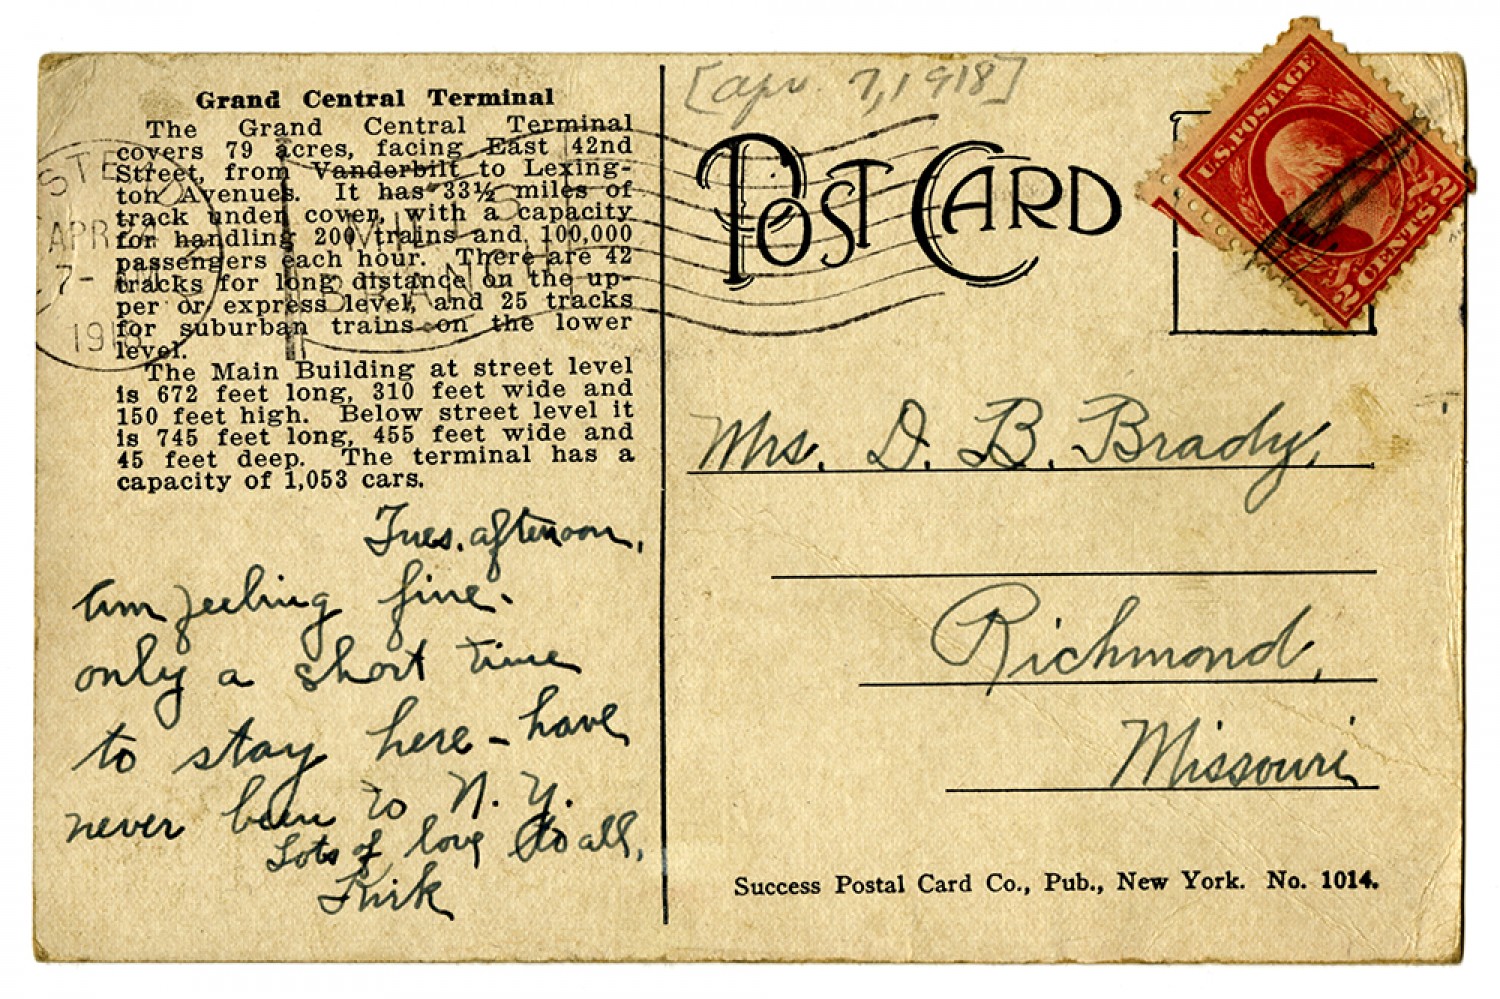 [apr. 7, 1918]
Grand Central Terminal
The Grand Central Terminal
covers 79 acres, facing East 42nd
Street, from Vanderbilt to Lexing-
ton Avenues. It has 33½ miles of
track under cover, with a capacity
for handling 200 trains and 100,000
passengers each hour. There are 42
tracks for long distance on the up-
per or express level, and 25 tracks
for suburban trains on the lower
level.
The Main Building at street level
is 672 feet long, 310 feet wide and
150 feet high. Below street level it
is 745 feet long, 455 feet wide and
45 feet deep. The terminal has a
capacity of 1,053 cars.
APR
7-
MILLS
BRANCH
Tues. afternoon,
am feeling fine.
only a short time
to stay here - have
never been to N. Y.
Lots of love to all,
Kirk
POST CARD
U.S. POSTAGE
2 CENTS 2
Mrs. D. B. Brady,
Richmond,
Missouri
Success Postal Card Co., Pub., New York. No. 1014.